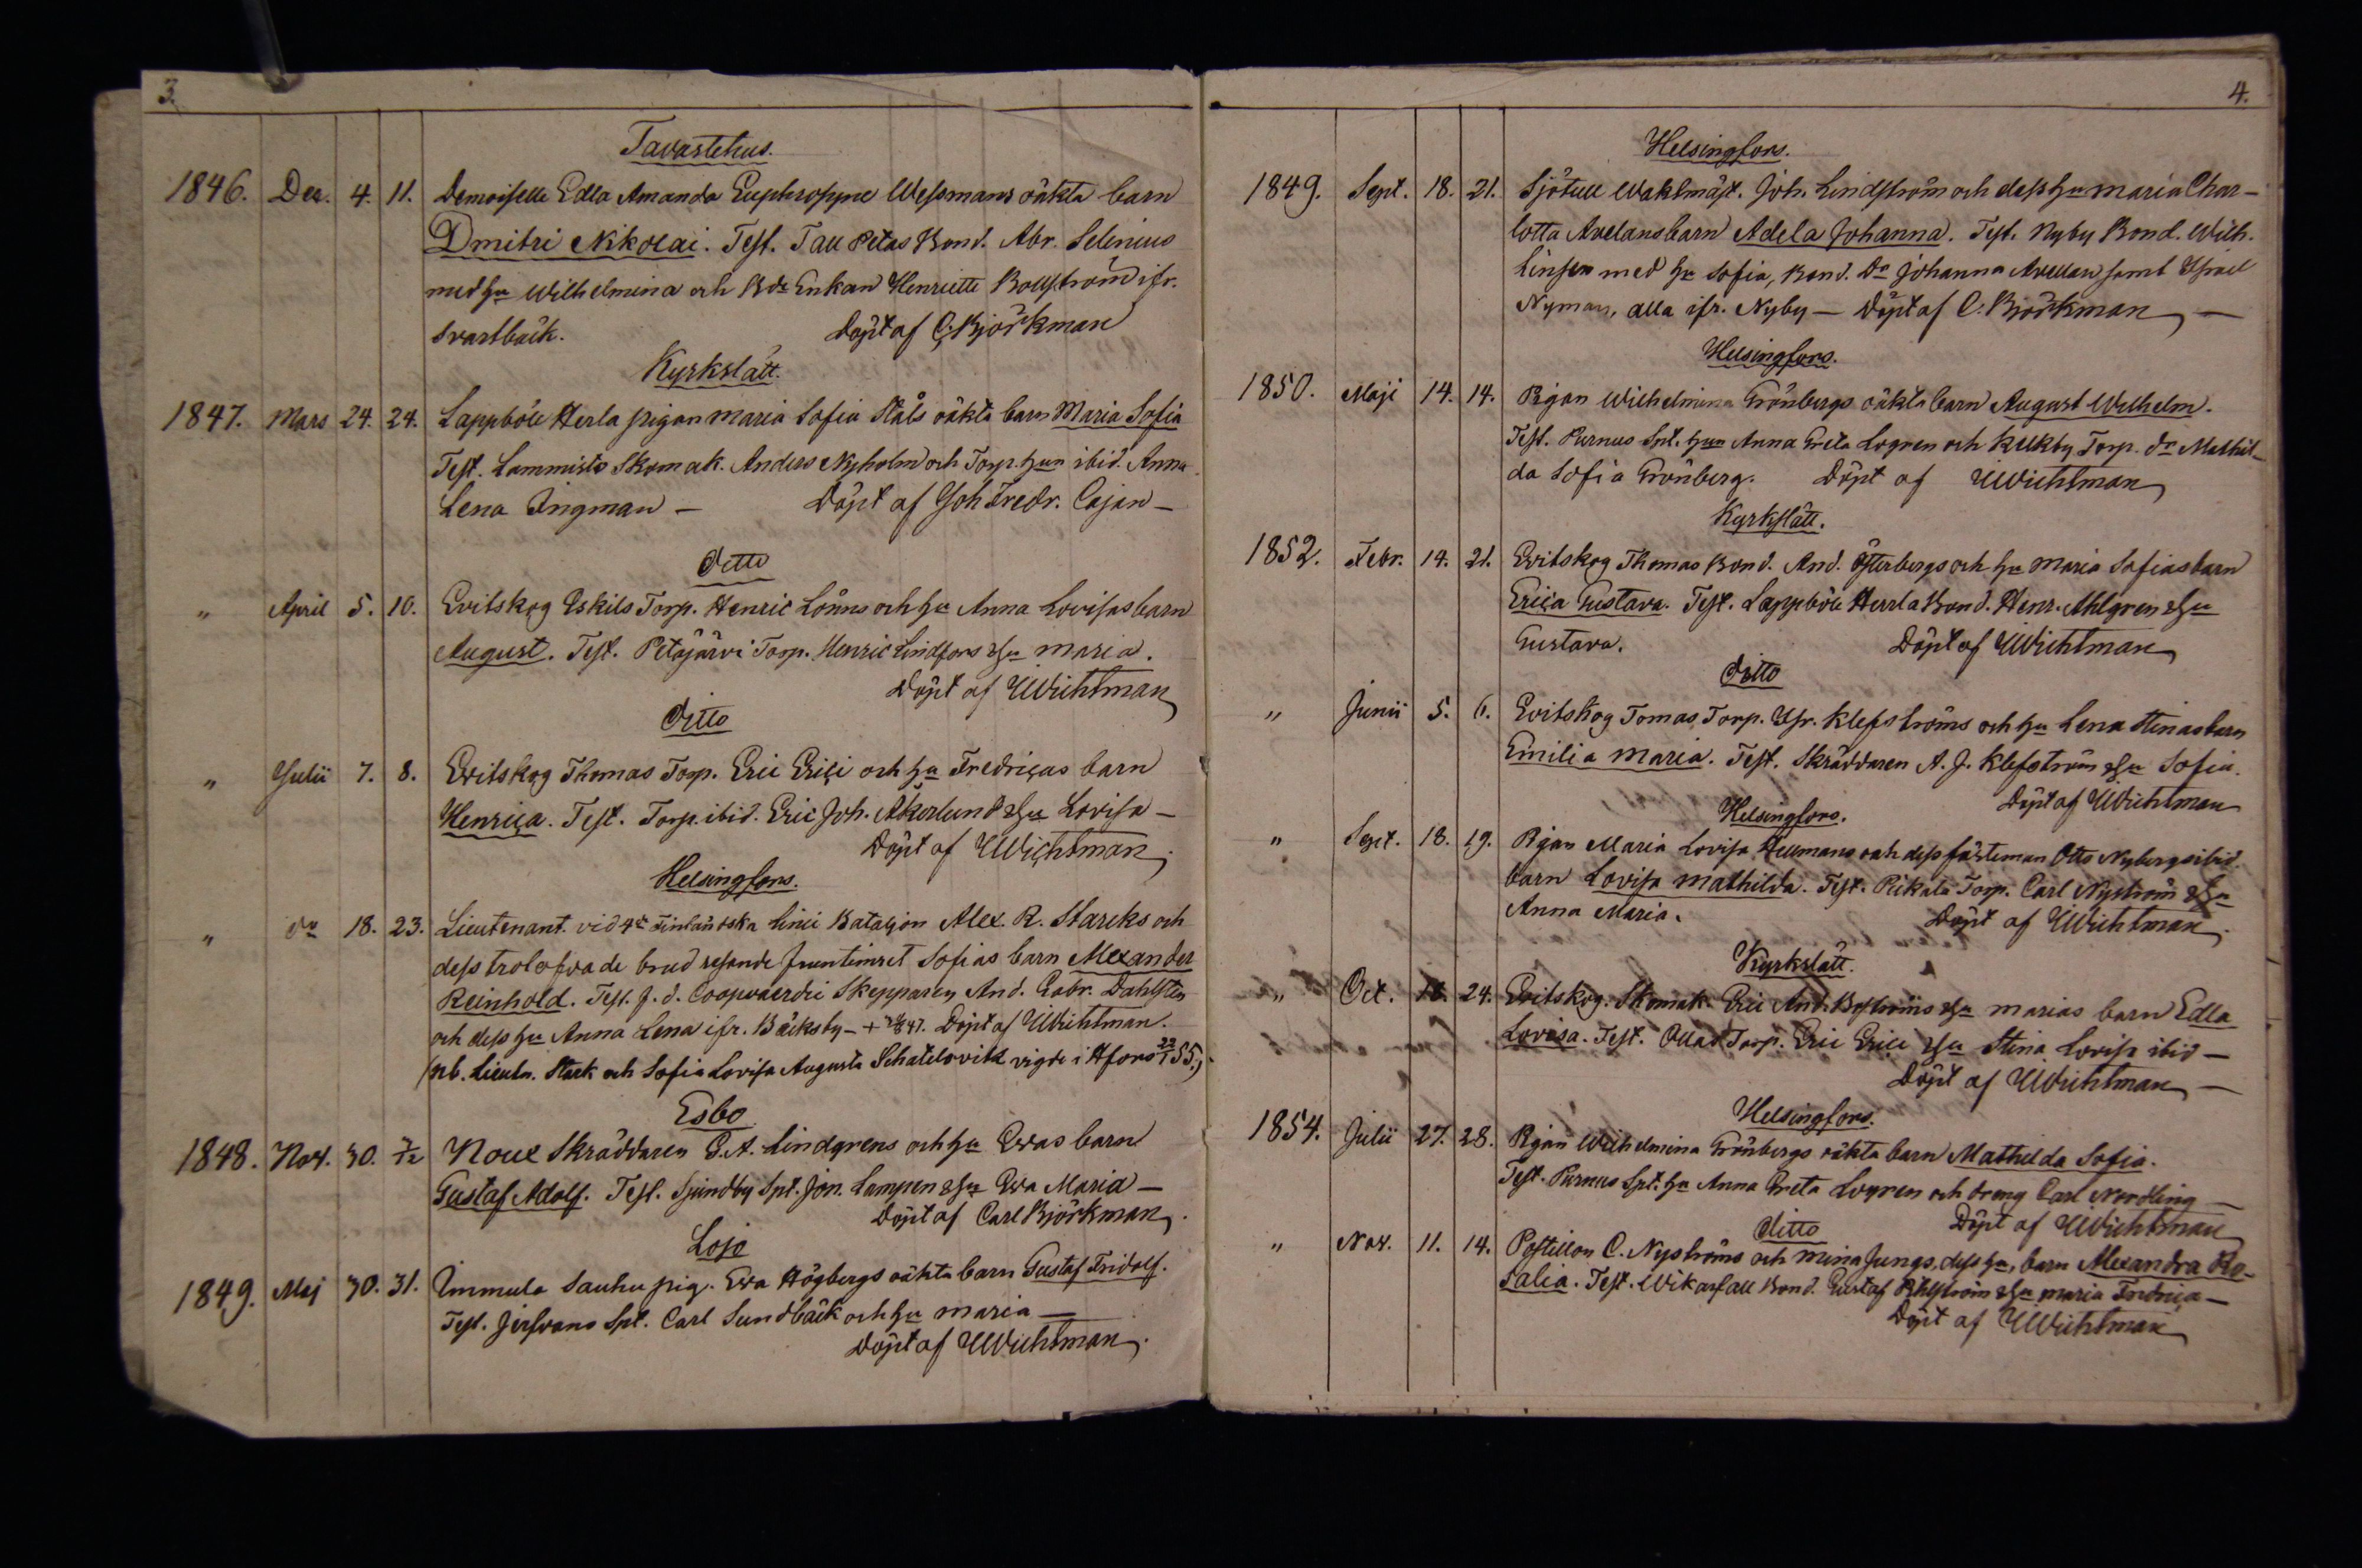 3.
Tavastehus.
1846. Dec. 4. 11. Demoiselle Edla Amanda Euphrosyne Wessmans oäkta barn
Dmitri Nikolai. Test. Tau Petas Bond. Abr. Selenius
med hu Wilhelmina och Bde Enkan Henriette Bollström ifr.
Svartbäck. Döpt af C. Björkman
Kyrkslätt.
1847. Mars 24. 24. Lappböle Herla pigan Maria Sofia Ståls oäkta barn Maria Sofia
Test. Lammisto Skomak. Anders Nyholm och Torp. hun ibid. Anna
Lena Ingman – Döpt af Joh Fredr. Cajan –
Ditto
" April 5. 10. Evitskog Eskils Torp. Henric Lönns och hu Anna Lovisas barn
August. Test. Petäjärvi Torp. Henric Lindfors & hu Maria.
Döpt af UWichtman
Ditto
" Julii 7. 8. Evitskog Thomas Torp. Eric Erici och hu Fredricas barn
Henrica. Test. Torp. ibid. Eric Joh. Åkerlund & hu Lovisa –
Döpt af UWichtman
Helsingfors.
" do 18. 23. Lieutenant. vid 4de Finländska Linii Bataljon Alex. R. Starcks och
dess trolofvade brud resande fruntimret Sofias barn Alexander
Reinhold. Test. f. d. Coopvaerdie Skepparen And. Gabr. Dahlsten
och dess hu Anna Lena ifr. Bäcksby – + 847. Döpt af UWichtman.
(nb. Lieutn. Stark och Sofia Lovisa Augusta Schatelovitz vigde i Hfors 55.)
Esbo
1848. Nov. 30. 7/12 Noux Skräddaren C. A. Lindgrens och hu Evas barn
Gustaf Adolf. Test. Sjundby Spt. Jon. Lampen & hu Eva Maria –
Döpt af Carl Björkman.
Lojo
1849. Maj 30. 31. Immula Sauhu pig. Eva Högbergs oäkta barn Gustaf Fridolf.
Test. Spt. Carl Sundbäck och hu Maria –
Döpt af UWichtman.
4.
Helsingfors.
1849. Sept. 18. 21. Sjötull Waktmäst. Joh. Lindström och dess hu Maria Char-
lotta Avelans barn Adela Johanna. Test. Nyby Bond. Wilh.
Linsén med hu Sofia, Bond. Dr Johanna Avellan samt Israel
Nyman, alla ifr. Nyby – Döpt af C. Björkman –
Helsingfors.
1850. Maji 14. 14. Pigan Wilhelmina Grönbergs oäkta barn August Wilhelm.
Test. Purnus Spt. hun Anna Greta Logren och Kukby Torp. dr Mathil-
da Sofia Grönberg. Döpt af UWichtman
Kyrkslätt.
1852. Febr. 14. 21. Evitskog Thomas Bond. And. Österbergs och hu Maria Sofias barn
Erica Gustava. Test. Lappböle Herrla Bond. Henr. Ahlgren & hu
Gustava. Döpt af UWichtman
Ditto
" Junii 5. 6. Evitskog Tomas Torp. Isr. Klefströms och hu Lena Stinas barn
Emilia Maria. Test. Skräddaren A. J. Klefström & hu Sofia.
Döpt af UWichtman
Helsingfors.
" Sept. 18. 19. Pigan Maria Lovisa Hellmans och dess fästeman Otto Nybergs ibid.
barn Lovisa Mathilda. Test. Pickala Torp. Carl Nyström & hu
Anna Maria. Döpt af UWichtman.
Kyrkslätt.
" Oct. 24. Evitskog. Skomak. Eric And. Boströms & hu Marias barn Edla
Lovisa. Test. Ollas Torp. Eric Erici & hu Stina Lovisa ibid –
Döpt af UWichtman –
Helsingfors.
1854. Julii 27. 28. Pigan Wilhelmina Grönbergs oäkta barn Mathilda Sofia.
Test. Purnus Spt. hu Anna Greta Logren och dreng Carl Nordling –
Döpt af UWichtman
Ditto
" Nov. 11. 14. Postillon C. Nyströms och Mina Jungs, dess hu, barn Alexandra Ro-
salia. Test. Wikarfall Bond. Gustaf Åhlström & hu Maria Fredrica –
Döpt af UWichtman